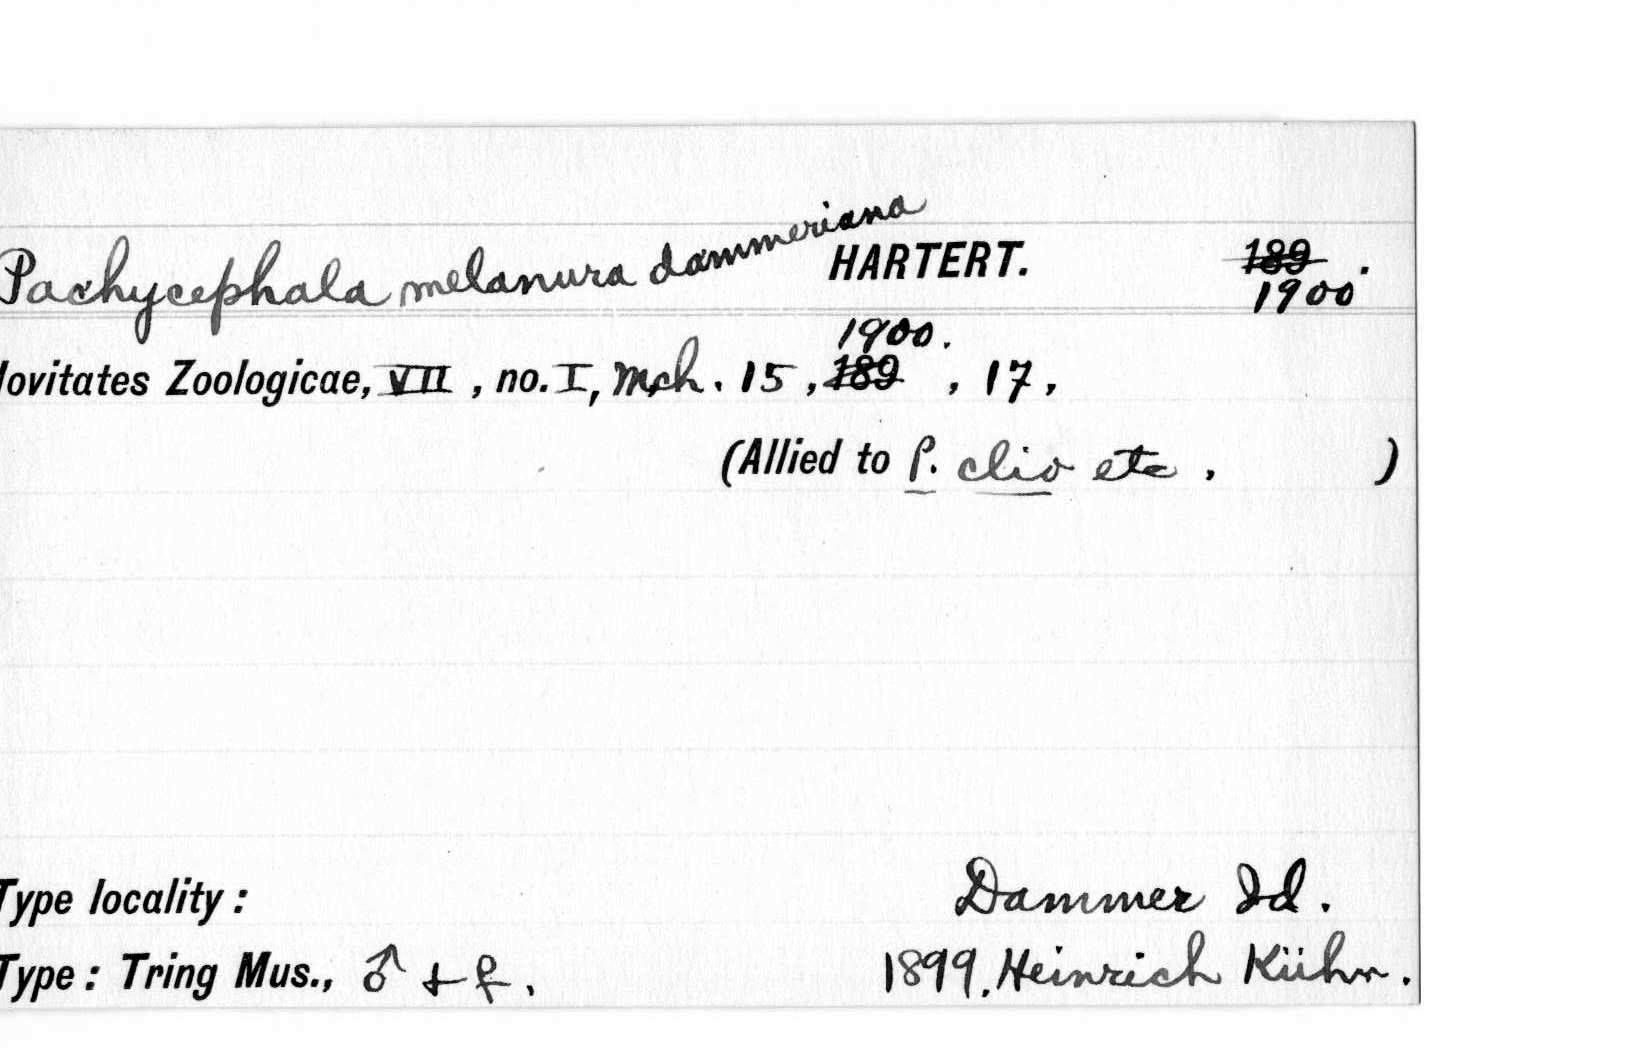 Pachycephala melanura dammeriana HARTERT. 189 .
1900
1900.
ovitates Zoologicae, VII , no. I, Mch. 15 , 189 , 17 ,
(Allied to P. clio etc . )
Type locality : Dammer Id .
Type : Tring Mus., ♂ + ♀ . 1899. Heinrich Kühn .